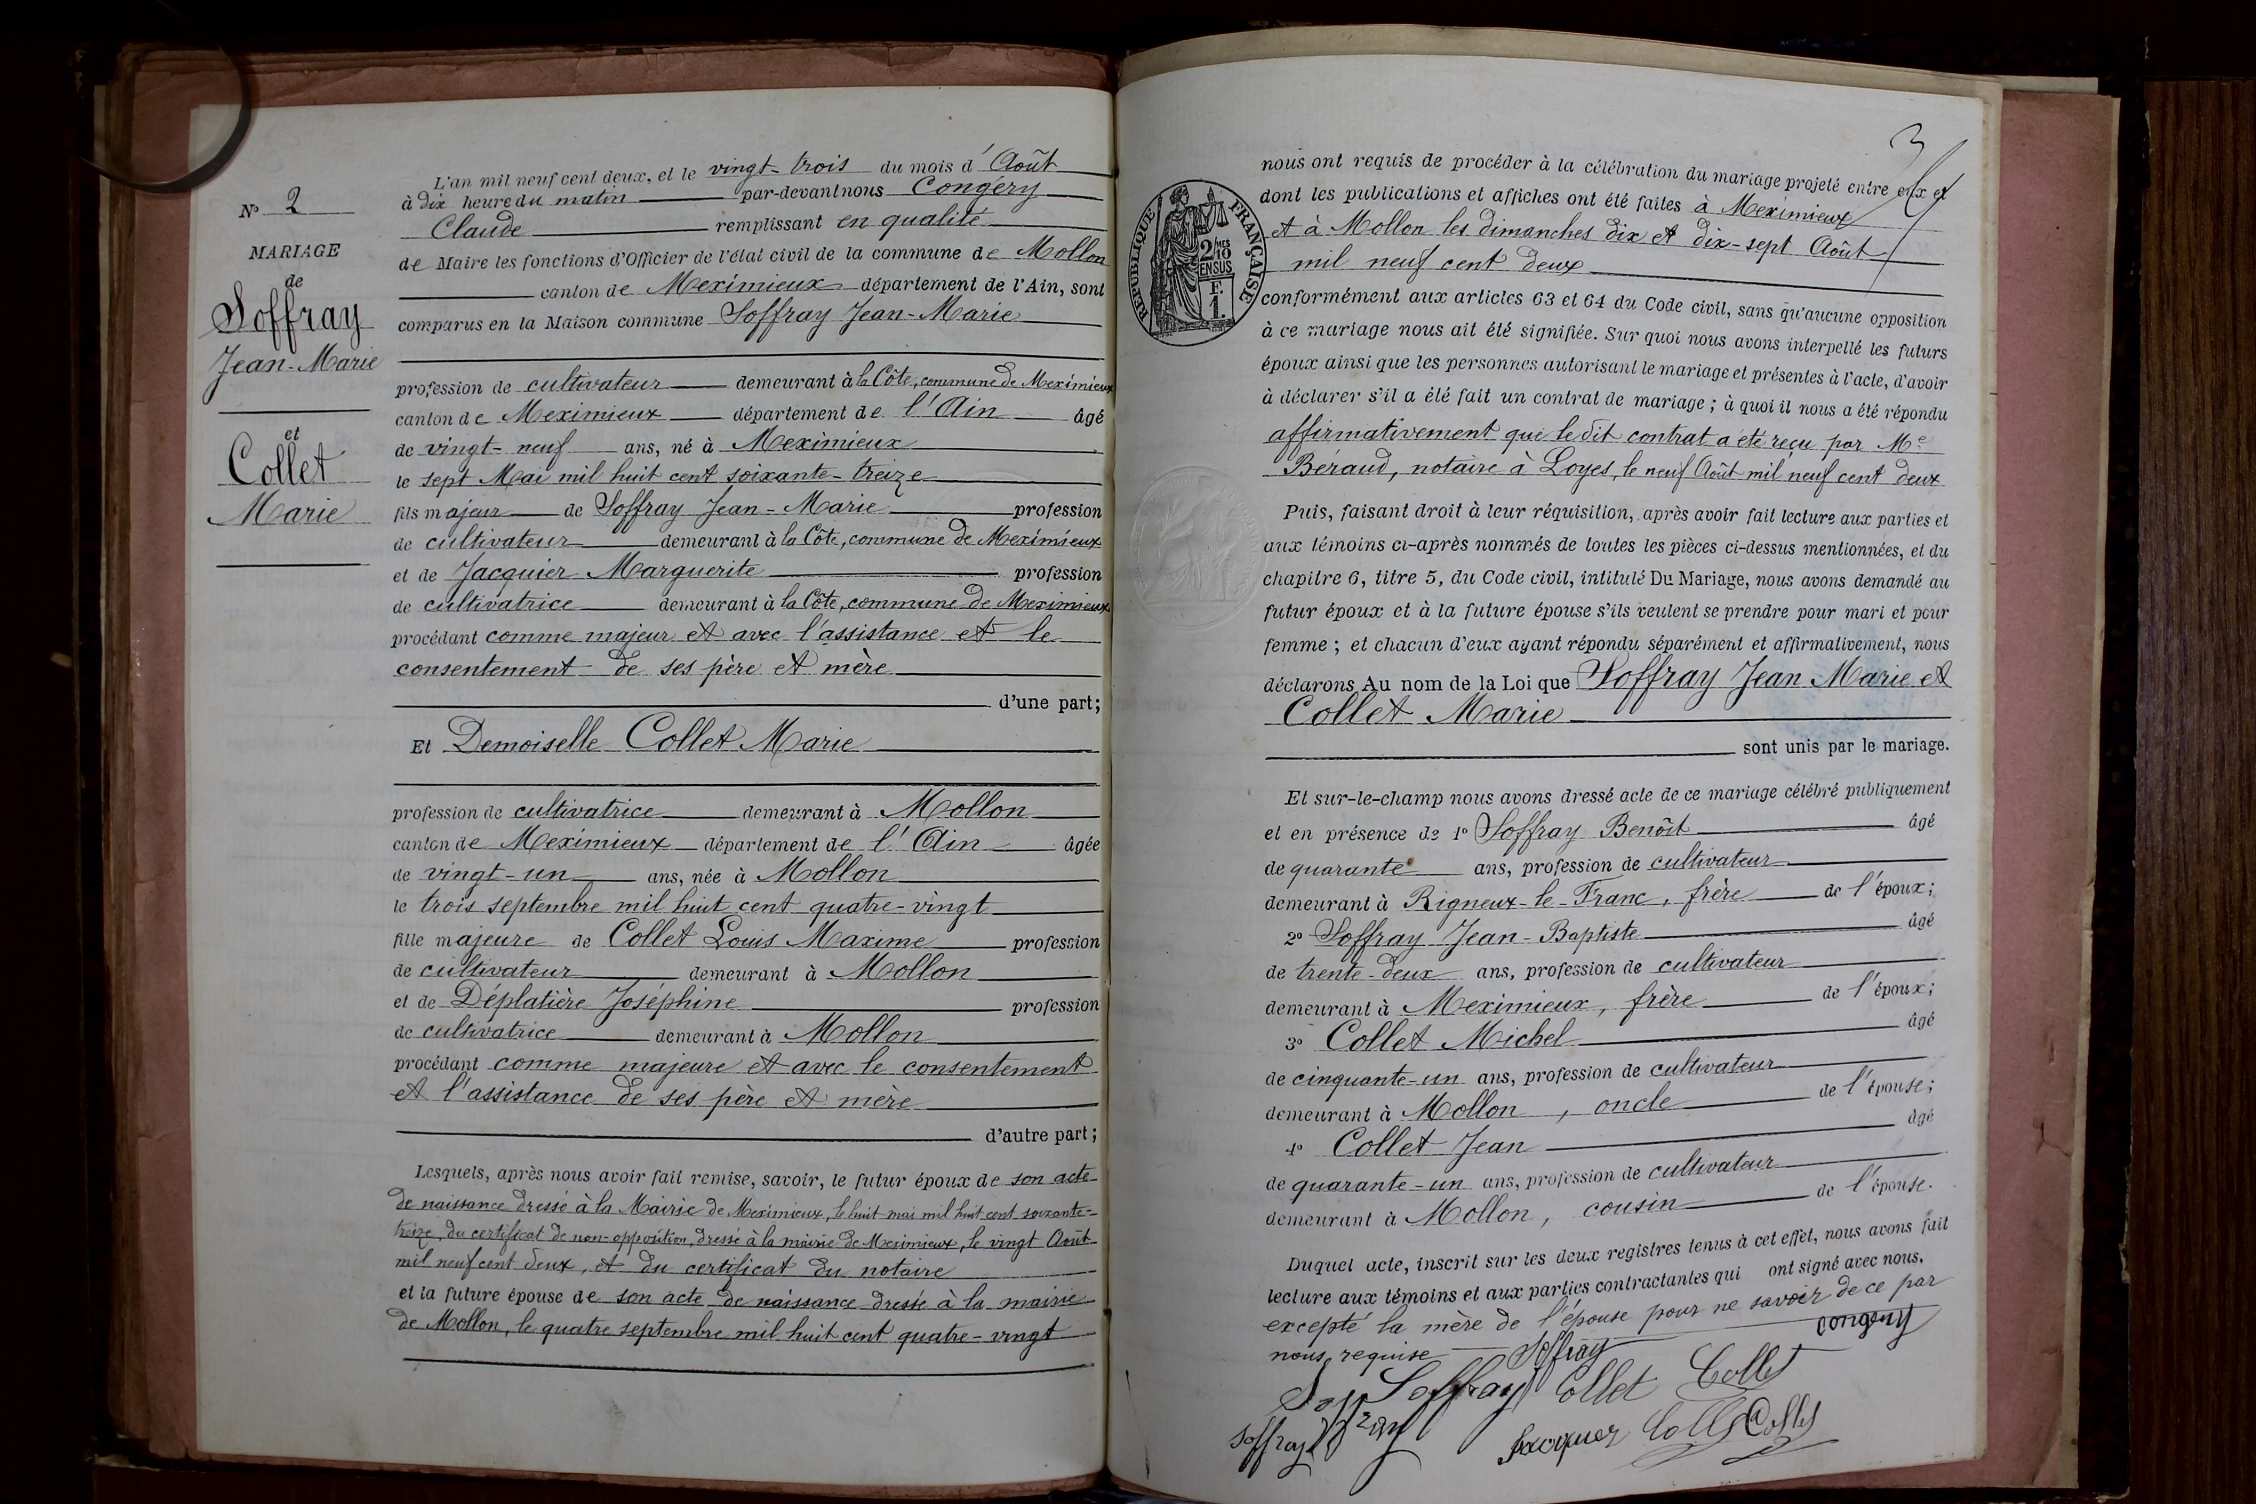 Nº 2
MARIAGE
de
Soffray
Jean-Marie
et
Collet
Marie
L'an mil neuf cent deux, et le vingt-trois du mois d'Août
à dix heure du matin par-devant nous Congery
Claude remplissant en qualité
de Maire les fonctions d'Officier de l'état civil de la commune de Mollon
canton de Meximieux département de l'Ain, sont
comparus en la Maison commune Soffray Jean-Marie
profession de cultivateur demeurant à la Côte, commune de Meximieux
canton de Meximieux département de l'Ain âgé
de vingt-neuf ans, né à Meximieux
le sept Mai mil huit cent soixante-treize
fils majeur de Soffray Jean-Marie profession
de cultivateur demeurant à la Côte, commune de Meximieux
et de Jacquier Marguerite profession
de cultivatrice demeurant à la Côte, commune de Meximieux
procédant comme majeur et avec l'assistance et le
consentement de ses père et mère
d'une part;
Et Demoiselle Collet Marie
profession de cultivatrice demeurant à Mollon
canton de Meximieux département de l'Ain âgée
de vingt-un ans, née à Mollon
le trois septembre mil huit cent quatre-vingt
fille majeure de Collet Louis Maxime profession
de cultivateur demeurant à Mollon
et de Déplatière Joséphine profession
de cultivatrice demeurant à Mollon
procédant comme majeure et avec le consentement
et l'assistance de ses père et mère
d'autre part;
Lesquels, après nous avoir fait remise, savoir, le futur époux de son acte
de naissance dressé à la Mairie de Meximieux, le huit mai mil huit cent soixante-
treize, du certificat de non-opposition, dressé à la mairie de Meximieux, le vingt Août
mil neuf cent deux, et du certificat du notaire
et la future épouse de son acte de naissance dressé à la mairie
de Mollon, le quatre septembre mil huit cent quatre-vingt
3
RÉPUBLIQUE FRANÇAISE
2/10 MES
EN SUS
F.
1.
nous ont requis de procéder à la célébration du mariage projeté entre eux et
dont les publications et affiches ont été faites à Meximieux
et à Mollon les dimanches dix et dix-sept Août
mil neuf cent deux
conformément aux articles 63 et 64 du Code civil, sans qu'aucune opposition
à ce mariage nous ait été signifiée. Sur quoi nous avons interpellé les futurs
époux ainsi que les personnes autorisant le mariage et présentes à l'acte, d'avoir
à déclarer s'il a été fait un contrat de mariage ; à quoi il nous a été répondu
affirmativement que ledit contrat a été reçu par Me
Béraud, notaire à Loyes, le neuf Août mil neuf cent deux
Puis, faisant droit à leur réquisition, après avoir fait lecture aux parties et
aux témoins ci-après nommés de toutes les pièces ci-dessus mentionnées, et du
chapitre 6, titre 5, du Code civil, intitulé Du Mariage, nous avons demandé au
futur époux et à la future épouse s'ils veulent se prendre pour mari et pour
femme ; et chacun d'eux ayant répondu séparément et affirmativement, nous
déclarons Au nom de la Loi que Soffray Jean Marie et
Collet Marie
sont unis par le mariage.
Et sur-le-champ nous avons dressé acte de ce mariage célébré publiquement
et en présence de 1º Soffray Benoît âgé
de quarante ans, profession de cultivateur
demeurant à Rigneux-le-Franc, frère de l'époux;
2º Soffray Jean-Baptiste âgé
de trente-deux ans, profession de cultivateur
demeurant à Meximieux, frère de l'époux;
3º Collet Michel âgé
de cinquante-un ans, profession de cultivateur
demeurant à Mollon, oncle de l'épouse;
4º Collet Jean âgé
de quarante-un ans, profession de cultivateur
demeurant à Mollon, cousin de l'épouse.
Duquel acte, inscrit sur les deux registres tenus à cet effet, nous avons fait
lecture aux témoins et aux parties contractantes qui ont signé avec nous,
excepté la mère de l'épouse pour ne savoir de ce par
nous requise
Soffray Congery
Soffray Soffray Collet Collet
Soffray Jacquier Collet Collet